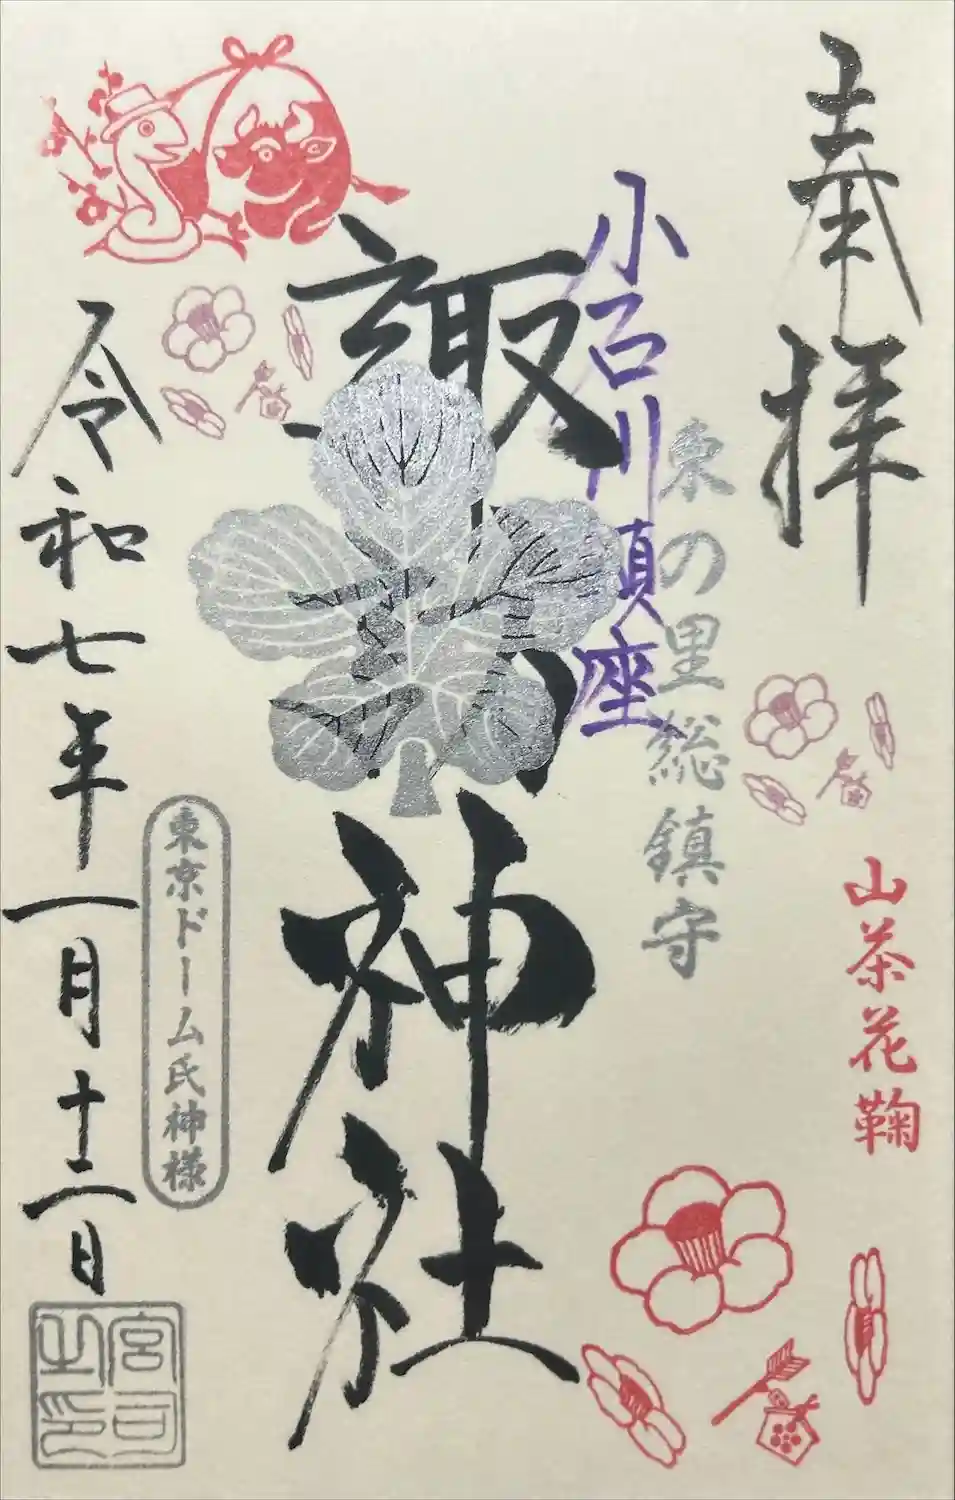 奉拝
山茶花鞠
東の里総鎮守
小石川鎮座
諏訪神社
東京ドーム氏神様
令和七年一月十二日
宮司之印